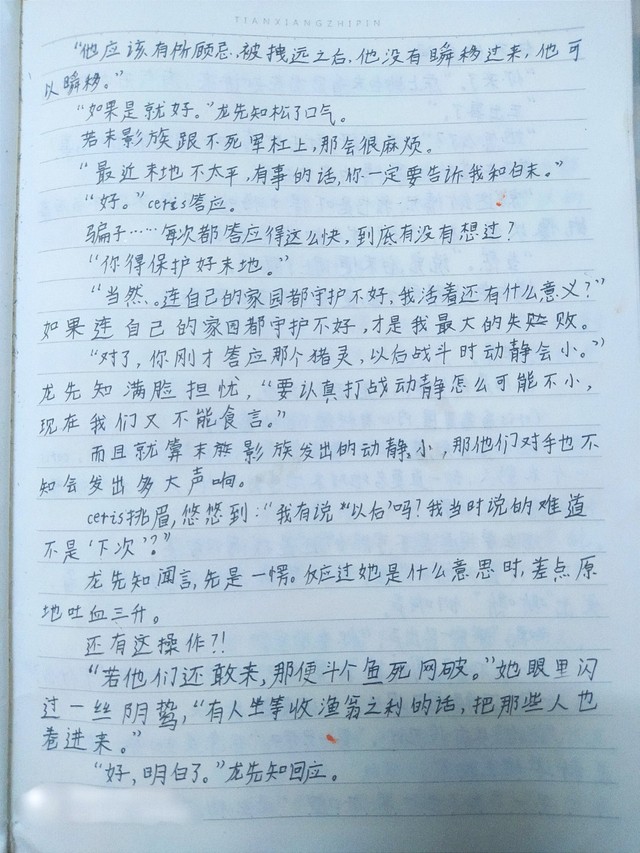 TIANXIANGZHIPIN
“他应该有所顾忌.被拽远之后,他没有瞬移过来,他可
以瞬移。”
“如果是就好。”龙先知松了口气。
若末影族跟不死军杠上,那会很麻烦。
“最近末地不太平,有事的话,你一定要告诉我和白末。”
“好。”ceris答应。
骗子……每次都答应得这么快,到底有没有想过?
“你得保护好末地。”
“当然、。连自己的家园都守护不好,我活着还有什么意义?”
如果连自己的家园都守护不好,才是我最大的失败。
“对了,你刚才答应那个猪灵,以后战斗时动静会小。”
龙先知满脸担忧,“要认真打战动静怎么可能不小,
现在我们又不能食言。”
而且就算末影族发出的动静小,那他们对手也不
知会发出多大声响。
ceris挑眉,悠悠到:“我有说“‘以后’吗?我当时说的难道
不是‘下次’?”
龙先知闻言,先是一愣。仅应过她是什么意思时,差点原
地吐血三升。
还有这操作?!
“若他们还敢来,那便斗个鱼死网破。”她眼里闪
过一丝阴鸷,“有人坐等收渔翁之利的话,把那些人也
卷进来。”
“好,明白了。”龙先知回应。